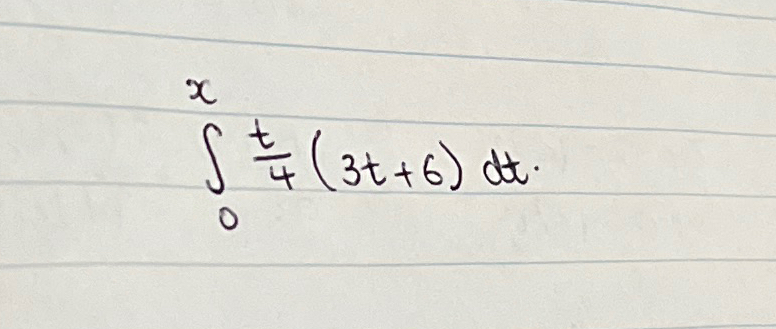 ∫₀ˣ t/4 (3t+6) dt.